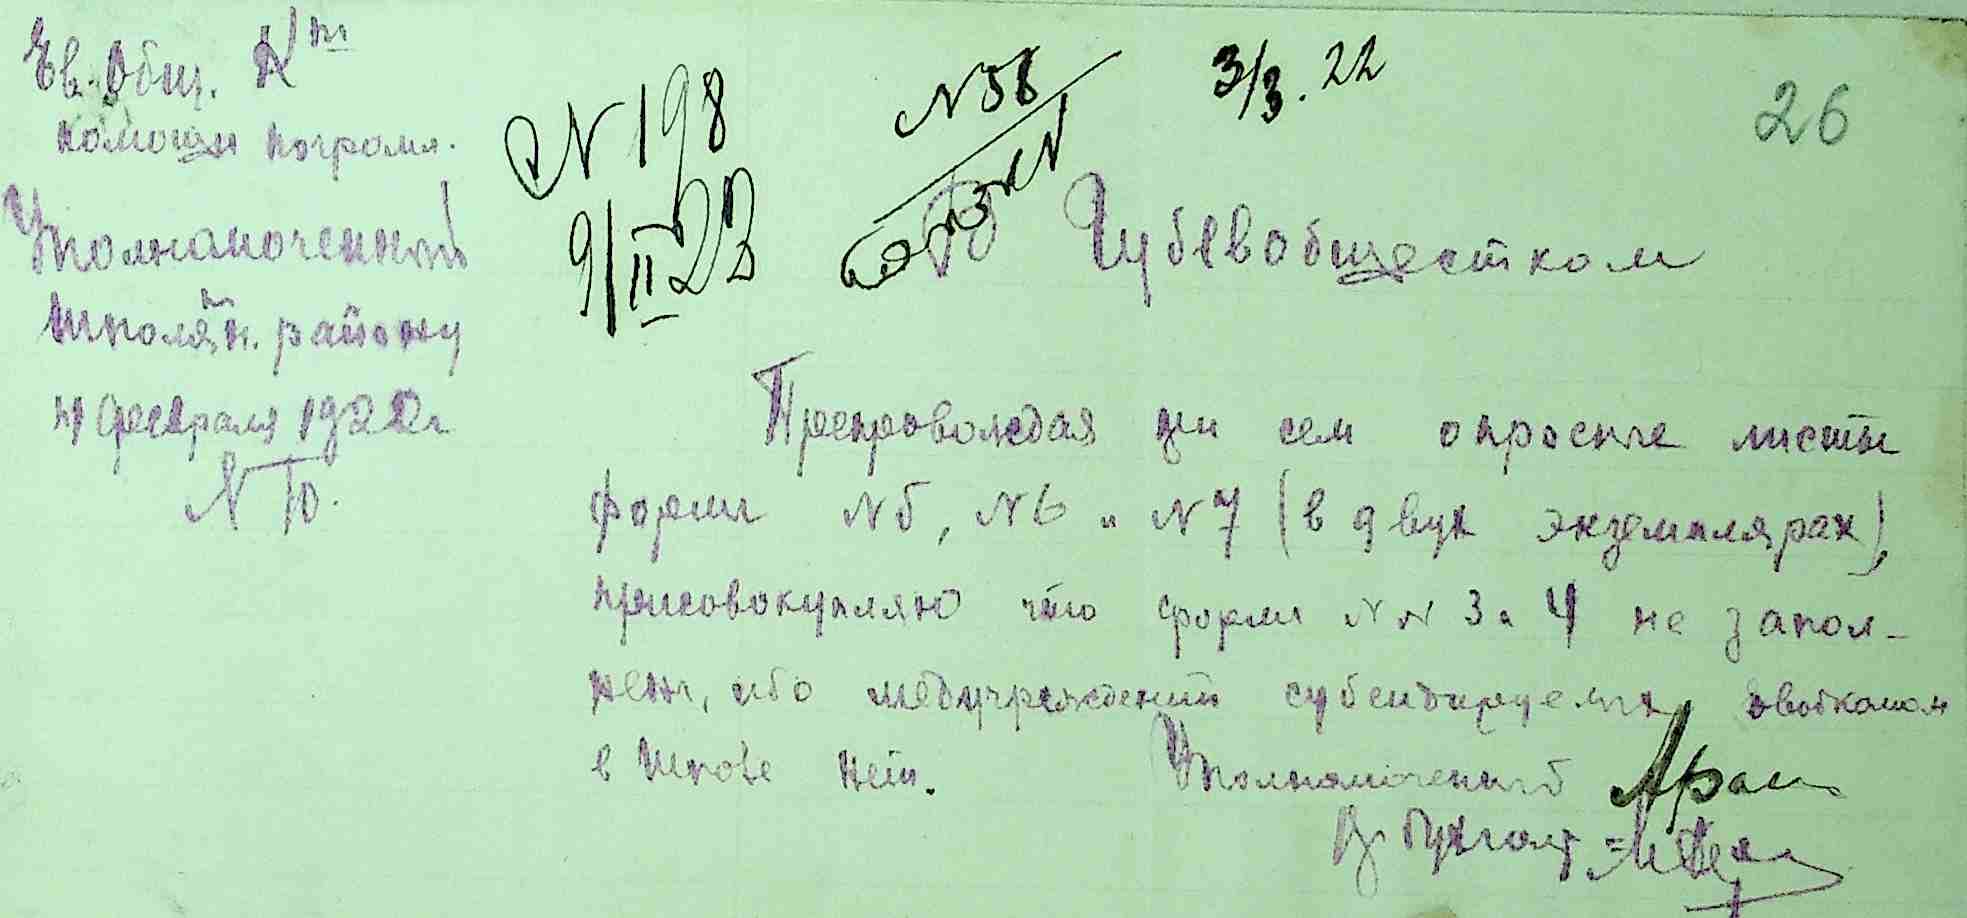 Ев. Общ. К-т
помощи погромл.
Уполномоченный
Шполян. району
февраля 1922 г
N 10.
N 198
9/II 22
N 56
3/3. 22
26
Губевобщестком
Препровождая при сем опросные листы
форм N5, N6 и N7 (в двух экземплярах),
присовокупляю что формы NN 3 и 4 не запол-
нены, ибо медучреждений субсидируемых Евобкомом
в Шполе нет.
Уполномоченный